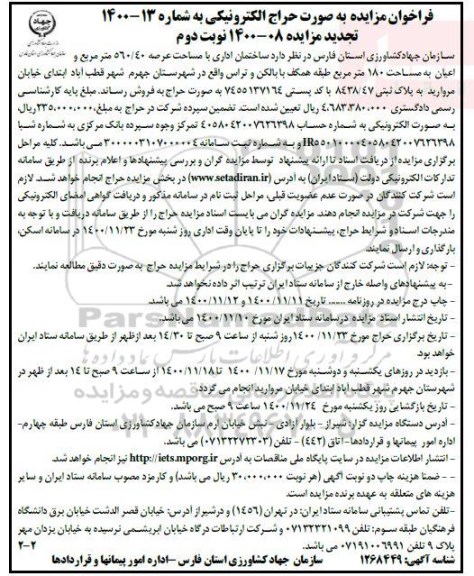 فراخوان مزایده به صورت حراج الکترونیکی به شماره ۱۳-۱۴۰۰
تجدید مزایده ۰۸-۱۴۰۰ نوبت دوم
سازمان جهادکشاورزی استان فارس در نظر دارد ساختمان اداری با مساحت عرصه ۵۶۰/۴۰ متر مربع و
اعیان به مساحت ۱۸۰ متر مربع طبقه همکف با بالکن و تراس واقع در شهرستان جهرم شهر قطب آباد ابتدای خیابان
مروارید به پلاک ثبتی ۸۴۳۸/۴۷ با کد پستی ۷۴۵۵۱۳۷۱۶۴ به صورت حراج به فروش رساند. مبلغ پایه کارشناسی
رسمی دادگستری ۴،۶۸۳،۳۸۰،۰۰۰ ریال تعیین شده است. تضمین سپرده شرکت در حراج به مبلغ ۲۳۵،۰۰۰،۰۰۰ ریال
به صورت الکترونیکی به شماره حساب ۴۰۵۸۰۴۲۰۰۷۶۲۶۳۹۸ تمرکز وجوه سپرده بانک مرکزی به شماره شبا
و به شماره ثبت سامانه می‌باشد. کلیه مراحل
برگزاری مزایده از دریافت اسناد تا ارائه پیشنهاد توسط مزایده گران و بررسی پیشنهادها و اعلام برنده از طریق سامانه
تدارکات الکترونیکی دولت (ستاد ایران) به آدرس (www.setadiran.ir) در بخش مزایده حراج انجام خواهد شد. لازم
است شرکت کنندگان در صورت عدم عضویت قبلی، مراحل ثبت نام در سامانه مذکور و دریافت گواهی امضای الکترونیکی
را جهت شرکت در مزایده انجام دهند. مزایده گران می بایست اسناد مزایده حراج را از طریق سامانه دریافت و با توجه به
مندرجات اسناد و شرایط حراج، پیشنهادات خود را تا پایان وقت اداری روز شنبه مورخ ۱۴۰۰/۱۱/۲۳ در سامانه اسکن،
بارگذاری و ارسال نمایند.
- توجه: لازم است شرکت کنندگان جزییات برگزاری حراج را در شرایط مزایده حراج به صورت دقیق مطالعه نمایند.
- به پیشنهادهای واصله خارج از سامانه ستاد ایران ترتیب اثر داده نخواهد شد.
- چاپ درج مزایده در روزنامه ....... تاریخ ۱۴۰۰/۱۱/۱۱ و ۱۴۰۰/۱۱/۱۲ می باشد.
- تاریخ انتشار اسناد مزایده در سامانه ستاد ایران مورخ ۱۴۰۰/۱۱/۱۰ می باشد.
- تاریخ برگزاری حراج مورخ ۱۴۰۰/۱۱/۲۳ روز شنبه از ساعت ۹ صبح تا ۱۴/۳۰ بعد ازظهر از طریق سامانه ستاد ایران
خواهد بود.
- بازدید در روزهای یکشنبه و دوشنبه مورخ ۱۴۰۰/۱۱/۱۷ تا ۱۴۰۰/۱۱/۱۸ از ساعت ۹ صبح تا ۱۴ بعد از ظهر در
شهرستان جهرم شهر قطب آباد ابتدای خیابان مروارید انجام می گردد.
- تاریخ بازگشایی روز یکشنبه مورخ ۱۴۰۰/۱۱/۲۴ ساعت ۹ صبح می باشد.
- آدرس دستگاه مزایده گزار: شیراز - بلوار آزادی - نبش خیابان ارم سازمان جهادکشاورزی استان فارس طبقه چهارم-
اداره امور پیمانها و قراردادها- اتاق (۴۴۲) - تلفن (۰۷۱۳۲۲۷۲۳۰۳) می باشد.
- انتشار اطلاعات مزایده در سایت پایگاه ملی مناقصات به آدرس http://iets.mporg.ir نیز انجام خواهد شد.
- - ضمنا هزینه چاپ دو نوبت آگهی (هر نوبت ۳۰،۰۰۰،۰۰۰ ریال می باشد) و کارمزد مصوب سامانه ستاد ایران و سایر
هزینه های متعلقه به عهده برنده مزایده است.
- تلفن تماس پشتیبانی سامانه ستاد ایران: در تهران (۱۴۵۶) و در شیراز آدرس: خیابان قصر الدشت خیابان برق دانشگاه
فرهنگیان طبقه سوم: تلفن ۰۷۱۳۲۳۲۱۰۹۹ و شرکت ارتباطات درگاه خیابان ابریشمی نرسیده به خیابان یزدان مهر
پلاک ۹ تلفن ۰۷۱۹۱۰۰۶۹۹۱ می باشد. ۲-۲
شناسه آگهی: ۱۲۶۸۴۴۹ سازمان جهاد کشاورزی استان فارس -اداره امور پیمانها و قراردادها